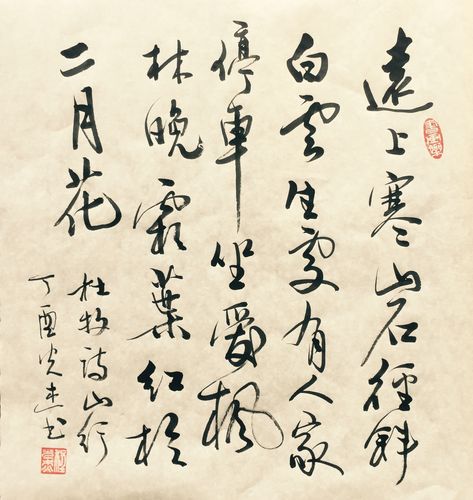 遠上寒山石徑斜
白雲生處有人家
停車坐愛楓
林晚霜葉紅於
二月花
杜牧詩山行
丁酉 書